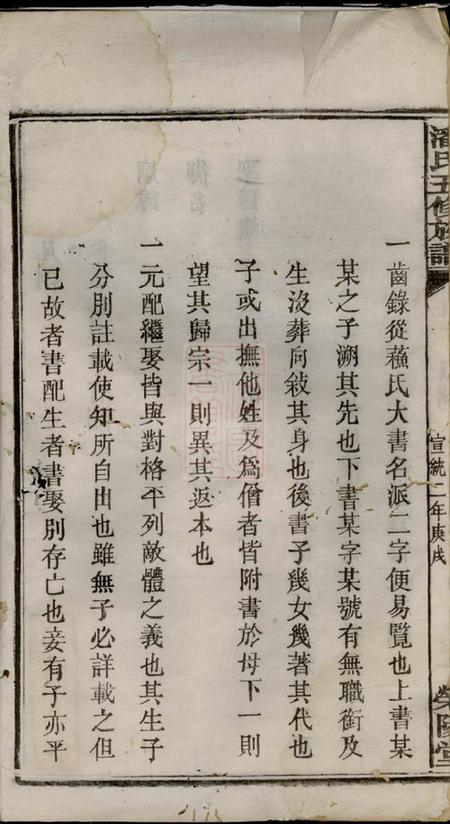 潘氏五修族譜
宣統二年庚戌
滎陽堂
一齒錄從蘓氏大書名派二字便易覽也上書某
某之子溯其先也下書某字某號有無職銜及
生沒葬向敍其身也後書子幾女幾著其代也
子或出撫他姓及爲僧者皆附書於母下一則
望其歸宗一則異其返本也
一元配繼娶皆與對格平列敵體之義也其生子
分別註載使知所自出也雖無子必詳載之但
已故者書配生者書娶別存亡也妾有子亦平